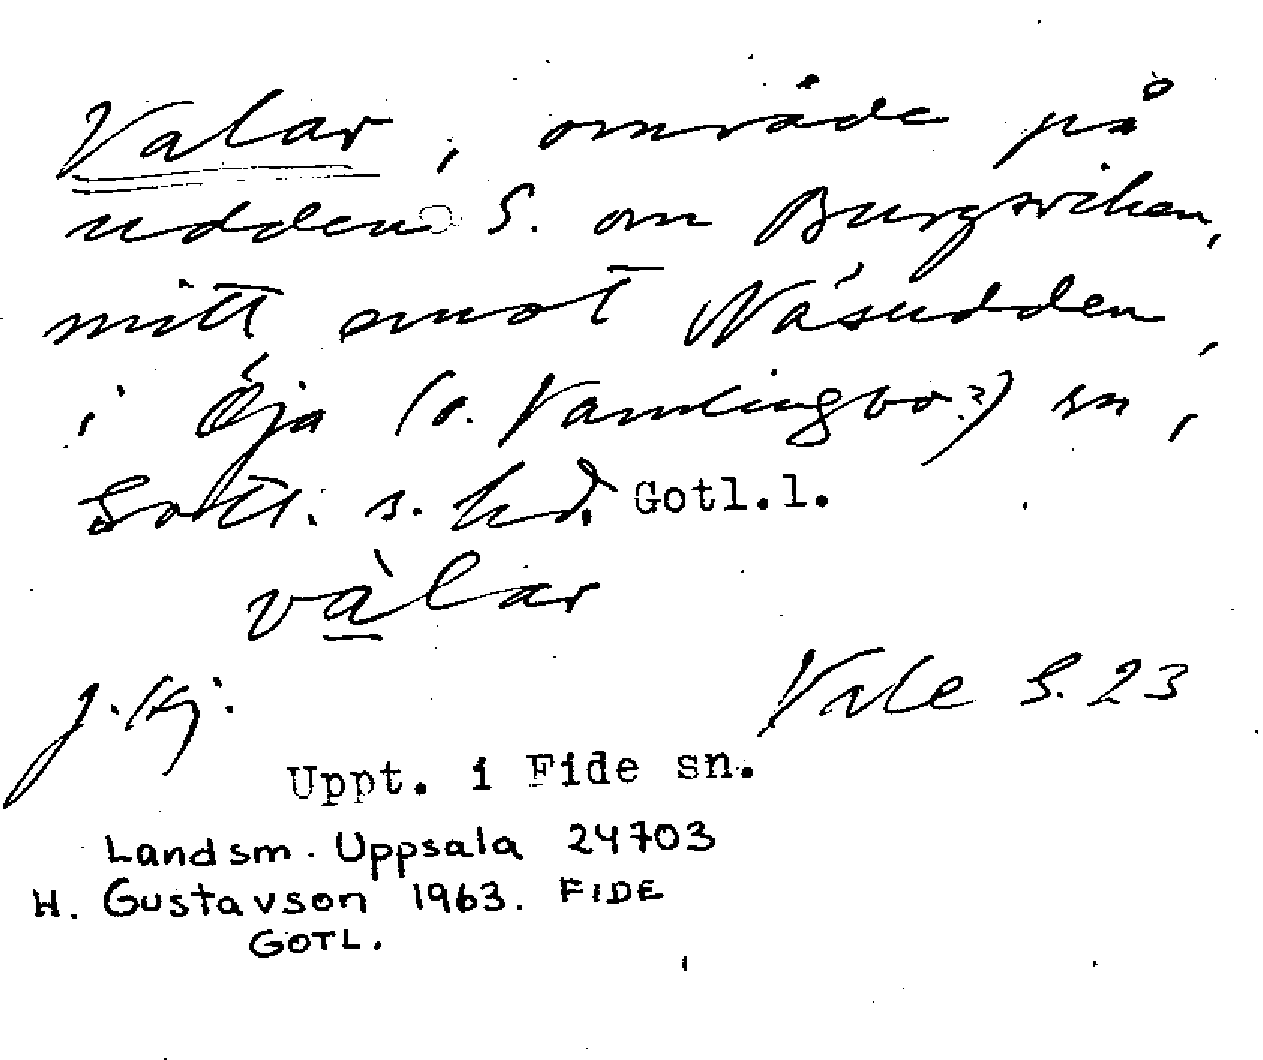 Valar, område på
udden S. om Burgsviken,
mitt emot Näsudden,
i Öja (o. Vamlingbo?) sn,
Gotl. s. hd. Gotl.l.
vàlar
J. Kj: Vale S. 23
Uppt. i Fide sn.
Landsm. Uppsala 24703
H. Gustavson 1963. FIDE
GOTL.